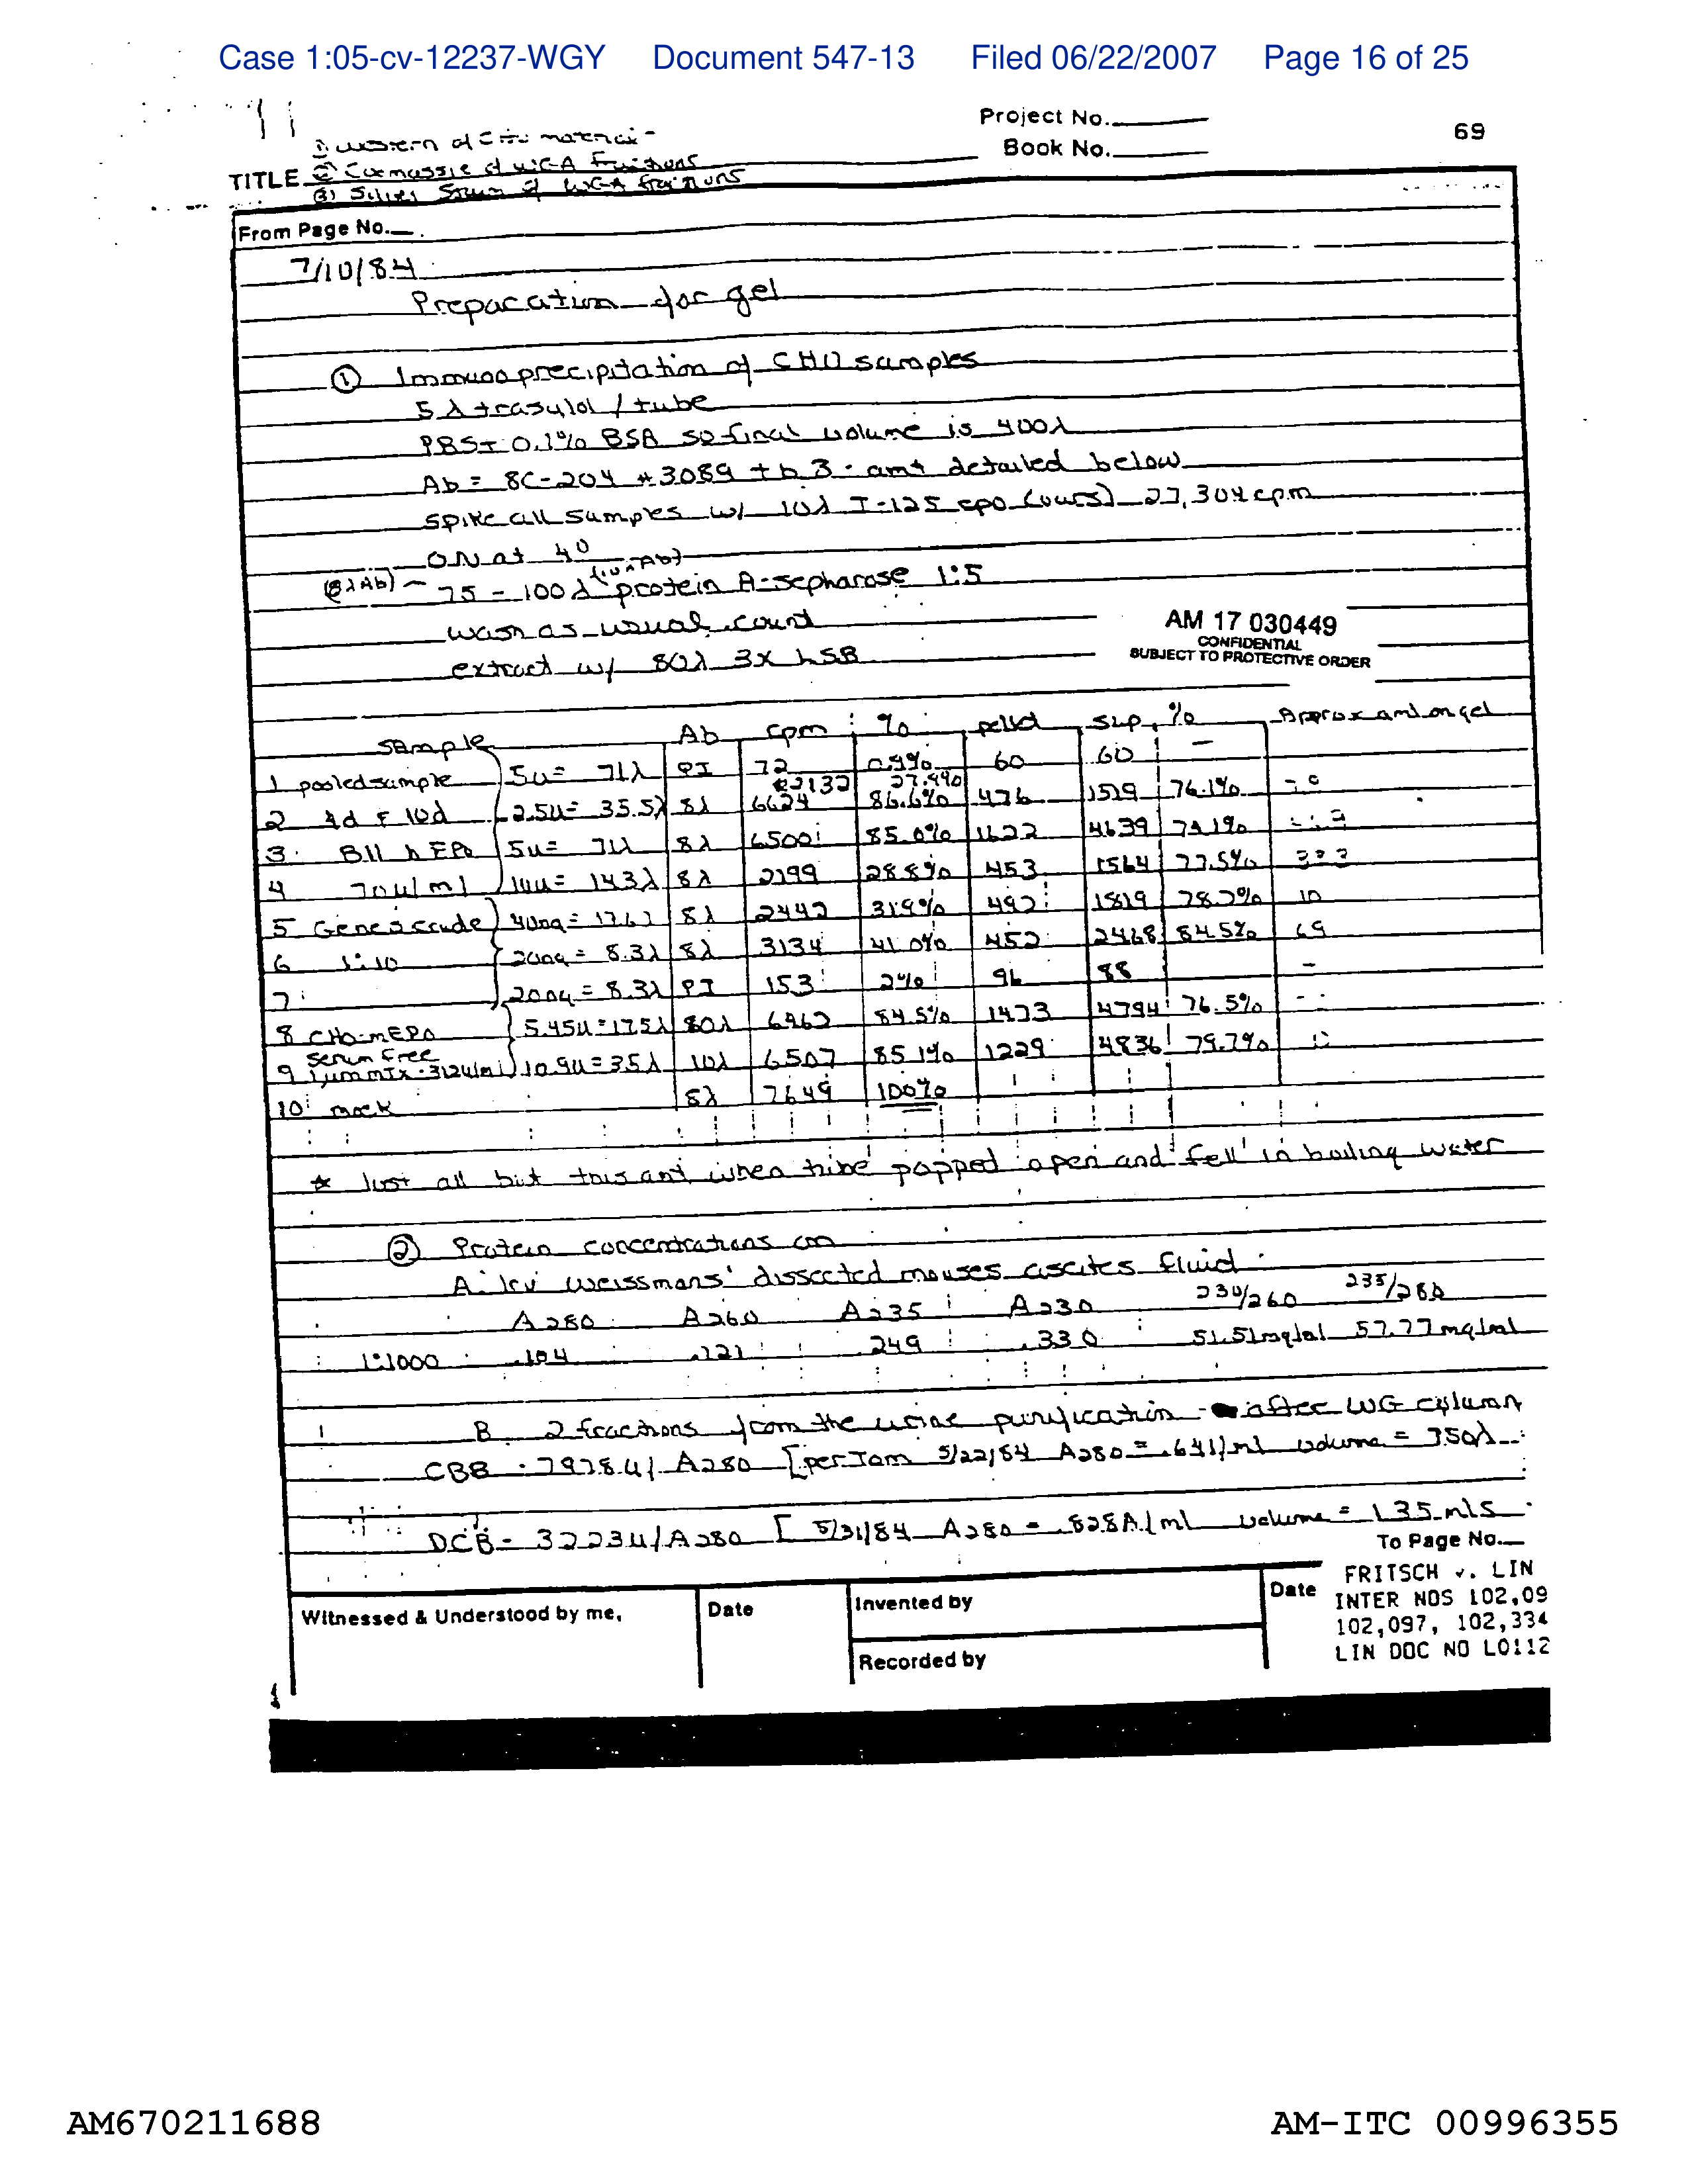 Case 1:05-cv-12237-WGY Document 547-13 Filed 06/22/2007 Page 16 of 25
Project No.
Book No.
69
① Western of CHO material
TITLE ② Coomassie of WGA Fractions
③ Silver Stain of WGA fractions
From Page No.
7/10/84
Preparation for gel
① Immunoprecipitation of CHO samples
5λ trasylol / tube
PBS + 0.1% BSA so final volume is 400λ
Ab = 8C-204 #3089 tb 3 - amt detailed below
spike all samples w/ 10λ I-125 epo (ours) 27,304 cpm
ON at 4°
(8λAb) - 75 - 100λ (10λAb) protein A-sepharose 1:5
wash as usual, count
extract w/ 80λ 3X LSB
AM 17 030449
CONFIDENTIAL
SUBJECT TO PROTECTIVE ORDER
Sample Ab cpm % pelled sup % Approx amt on gel
1 pooled sample 5u = 71λ PI 72 0.9% 60 60 -
2132 27.9%
2 4d + 10d 2.5u = 35.5λ 8λ 6624 86.6% 476 1519 76.1%
3 B11 hEPO 5u = 71λ 8λ 6500 85.0% 1622 4639 74.1%
4 70u/ml 10u = 143λ 8λ 2199 28.8% 453 1564 77.5%
5 Genes crude 40ng = 8λ 2442 31.9% 492 1819 78.7% 10
6 1:10 20ng = 8.3λ 8λ 3134 41.0% 452 2468 84.5%
7 20ng = 8.3λ PI 153 2% 96 88 -
8 CHO-mEPO 5.45u = 17.5λ 80λ 6462 84.5% 1473 4794 76.5%
serum free
9 312u/ml 10.9u = 35λ 10λ 6507 85.1% 1229 4836 79.7%
10 mock 8λ 7649 100%
* lost all but this amt when tube popped open and fell in boiling water
② Protein concentrations on
A. Irv Weissmans' dissected mouses ascites fluid
A280 A260 A235 A230 230/260 235/280
1:1000 .104 .121 .249 .330 51.51mg/ml 57.77mg/ml
B. 2 fractions from the urine purification - after WG column
CBB - 7978u/A280 [per Tom 5/22/84 A280 = .641/ml volume = 350λ
DCB - 3223u/A280 [ 5/31/84 A280 = .828A/ml volume = 1.35 mls
To Page No.
Witnessed & Understood by me,
Date
Invented by
Recorded by
Date
FRITSCH v. LIN
INTER NOS 102,09
102,097, 102,334
LIN DOC NO L0112
AM670211688
AM-ITC 00996355